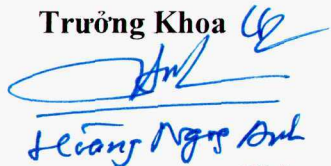 Trưởng Khoa
Hoàng Ngọc Anh